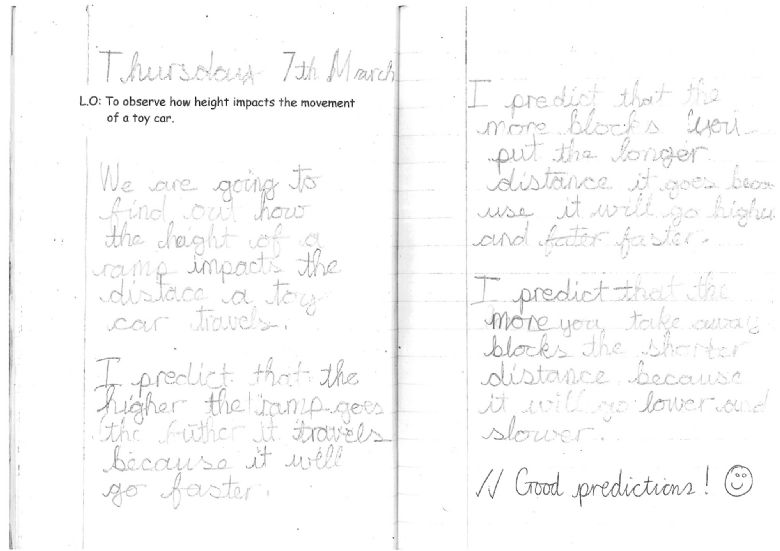 Thursday 7th March
L.O: To observe how height impacts the movement
of a toy car.
We are going to
find out how
the height of a
ramp impacts the
distace a toy
car travels.
I predict that the
higher the ramp goes
the futher it travels
because it will
go faster.
I predict that the
more blocks you
put the longer
distance it goes beca
use it will go higher
and fater faster.
I predict that the
more you take away
blocks the shorter
distance because
it will go lower and
slower.
// Good predictions! ☺